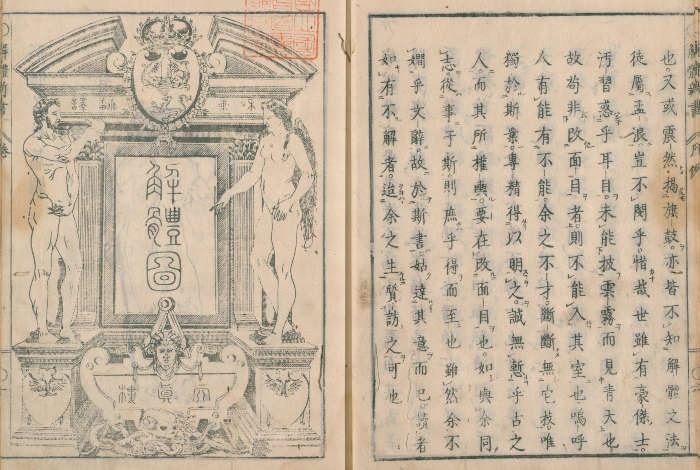 也又或震然揭旗鼓。亦皆不知解體之法
徒屬孟浪豈不閔乎。惜哉世雖有豪傑士。
汚習惑乎耳目。未能披雲霧而見青天也
故苟非改面目者。則不能入其室也嗚呼
人有能有不能。余之不才。斷斷無它技。唯
獨於斯業。專精得以明之。誠無慙乎古之
人。而其所權輿。要在改面目也。如與余同
志從事于斯則庶乎得而至也雖然余不
嫺乎文辭。故於斯書。姑達其意而已。讀者
如有不解者。迨余之生賢訪之可也
解體圖
天真樓